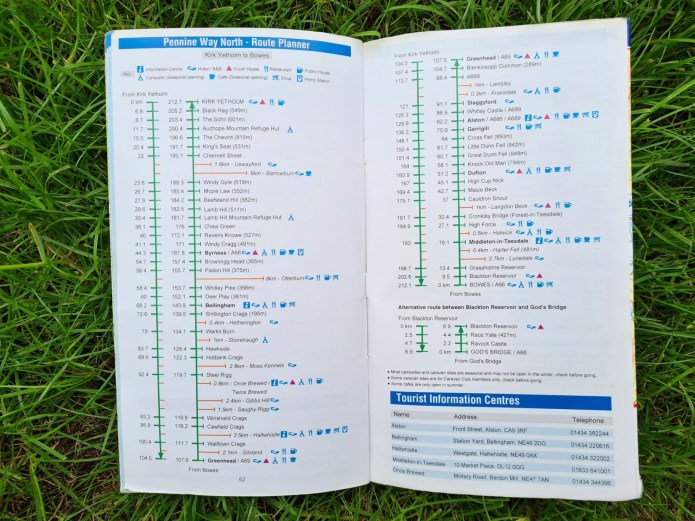 Pennine Way North - Route Planner
Kirk Yetholm to Bowes
Key
Information Centre Hotel / B&B Youth Hostel Restaurant Public House
Campsite (Seasonal opening) Cafe (Seasonal opening) Shop Petrol Station
From Kirk Yetholm
0 km 212.1 KIRK YETHOLM
Black Hag (549m)
8.7 203.4 The Schil (601m)
11.7 200.4 Auchope Mountain Refuge Hut
The Cheviot (815m)
King's Seat (531m)
22 190.1 Chennell Street
1.6km - Uswayford
6km - Barrowburn
Windy Gyle (619m)
Mozie Law (552m)
Beefstand Hill (562m)
Lamb Hill (511m)
Lamb Hill Mountain Refuge Hut
36.1 176 Chew Green
40 172.1 Ravens Knowe (527m)
41.1 171 Windy Cragg (491m)
44.3 167.8 Byrness / A68
Brownrigg Head (365m)
Padon Hill (375m)
8km - Otterburn
58.4 153.7 Whitley Pike (356m)
60 152.1 Deer Play (361m)
68.2 143.9 Bellingham
Shitlington Crags (195m)
2.4km - Hetherington
78 134.1 Warks Burn
1km - Stonehaugh
83.7 128.4 Hawkside
89.8 122.3 Hotbank Crags
2.8km - Moss Kennels
92.4 119.7 Steel Rigg
0.8km - Once Brewed
Twice Brewed
2.4km - Gibbs Hill
1.5km - Saughy Rigg
93.3 118.8 Winshield Crags
Cawfield Crags
3.5km - Haltwhistle
100.4 111.7 Walltown Crags
2.1km - Gilsland
104.5 107.6 Greenhead / A69
From Bowes
62
From Kirk Yetholm
104.5 107.6 Greenhead / A69
107.4 104.7 Blenkinsopp Common (289m)
113.7 98.4 A689
1km - Lambley
0.3km - Knarsdale
121 91.1 Slaggyford
Whitley Castle / A689
Alston / A686 / A689
136.2 75.9 Garrigill
148.1 64 Cross Fell (893m)
Little Dunn Fell (842m)
Great Dunn Fell (848m)
154 58.1 Knock Old Man (794m)
Dufton
167 45.1 High Cup Nick
169.4 42.7 Maize Beck
175.1 37 Cauldron Snout
1km - Langdon Beck
181.7 30.4 Cronkley Bridge (Forest-in-Teesdale)
High Force
0.5km - Holwick
193 19.1 Middleton-in-Teesdale
0.4km - Harter Fell (481m)
2.7km - Lunedale
198.7 13.4 Grassholme Reservoir
202.6 9.5 Blackton Reservoir
212.1 0 km BOWES / A66
From Bowes
Alternative route between Blackton Reservoir and God's Bridge
From Blackton Reservoir
0 km 6.9 Blackton Reservoir
2.5 4.4 Race Yate (427m)
4.7 2.2 Ravock Castle
6.9 0 km GOD'S BRIDGE / A66
From God's Bridge
● Most campsites and caravan sites are seasonal and may not be open in the winter: check before going.
● Some caravan sites are for Caravan Club members only: check before going.
● Some cafes are only open in summer.
Tourist Information Centres
Name Address Telephone
Alston Front Street, Alston, CA9 3RF 01434 382244
Bellingham Station Yard, Bellingham, NE48 2DG 01434 220616
Haltwhistle Westgate, Haltwhistle, NE49 0AX 01434 322002
Middleton-in-Teesdale 10 Market Place, DL12 0QG 01833 641001
Once Brewed Military Road, Bardon Mill, NE47 7AN 01434 344396